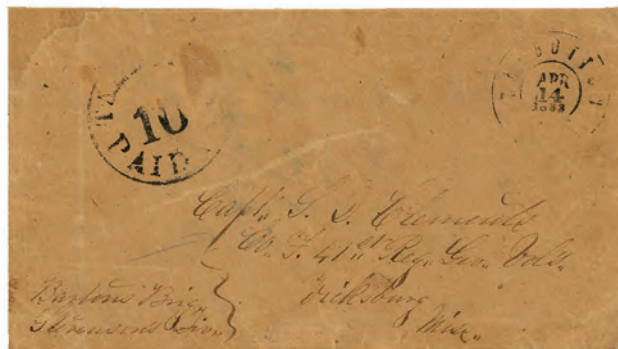 10
PAID
TALBOTTON
APR
14
1863
Capt. S. D. Clements
Co. 41st Reg. Geo. Vols.
Vicksburg
Miss.
Bartons Brig
Stevensons Div.